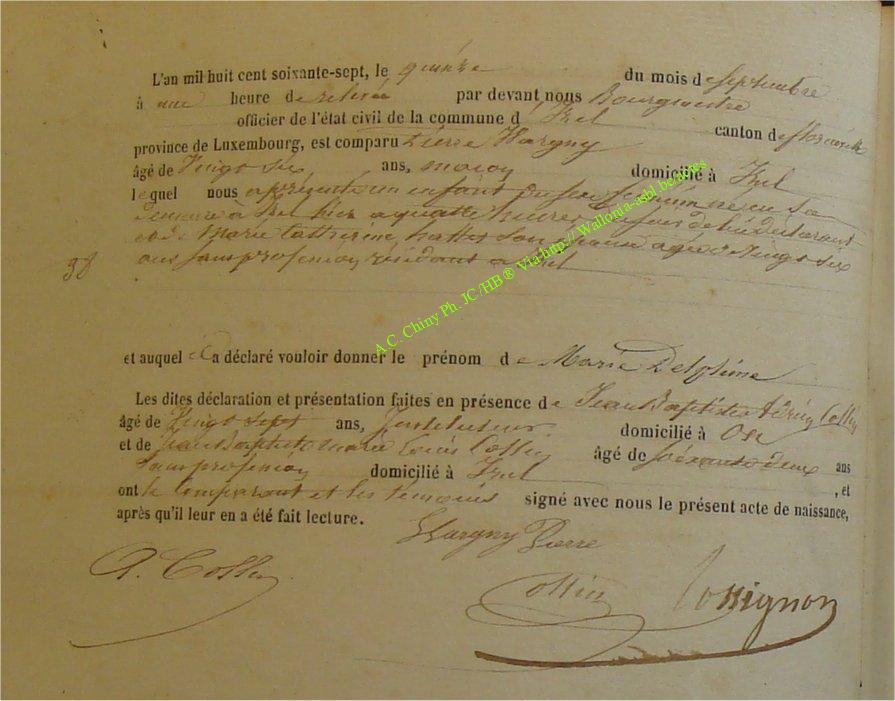 L'an mil huit cent soixante-sept, le quinze du mois de septembre
à une heure de relevée par devant nous Bourgmestre
officier de l'état civil de la commune d'Izel canton de florenville
province de Luxembourg, est comparu Pierre Hargny
âgé de Vingt six ans, maçon domicilié à Izel
lequel nous a présenté un enfant du sexe féminin né en sa
demeure à Izel hier a quatre heures du soir de lui déclarant
et de Marie Catherine son épouse agée de Vingt six
38
ans sans profession résidant a Izel
et auquel il a déclaré vouloir donner le prénom de Marie Delphine
Les dites déclaration et présentation faites en présence de Jean Baptiste Collin
âgé de Vingt sept ans, Instituteur domicilié à
et de Jean Baptiste marie Louis Collin âgé de soixante deux ans
sans profession domicilié à Izel , et
ont le Comparant et les témoins signé avec nous le présent acte de naissance,
après qu'il leur en a été fait lecture.
Hargny Pierre
A. Collin
Collin Rossignon
A.C. Chiny Ph. JC/HB® Via http://Wallonia-asbl.be/actes